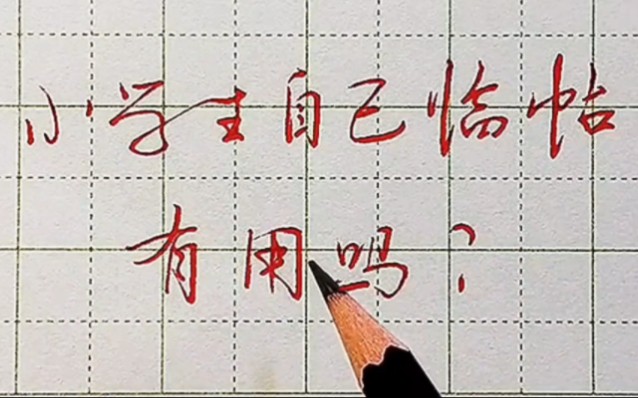 小学生自己临帖
有用吗?